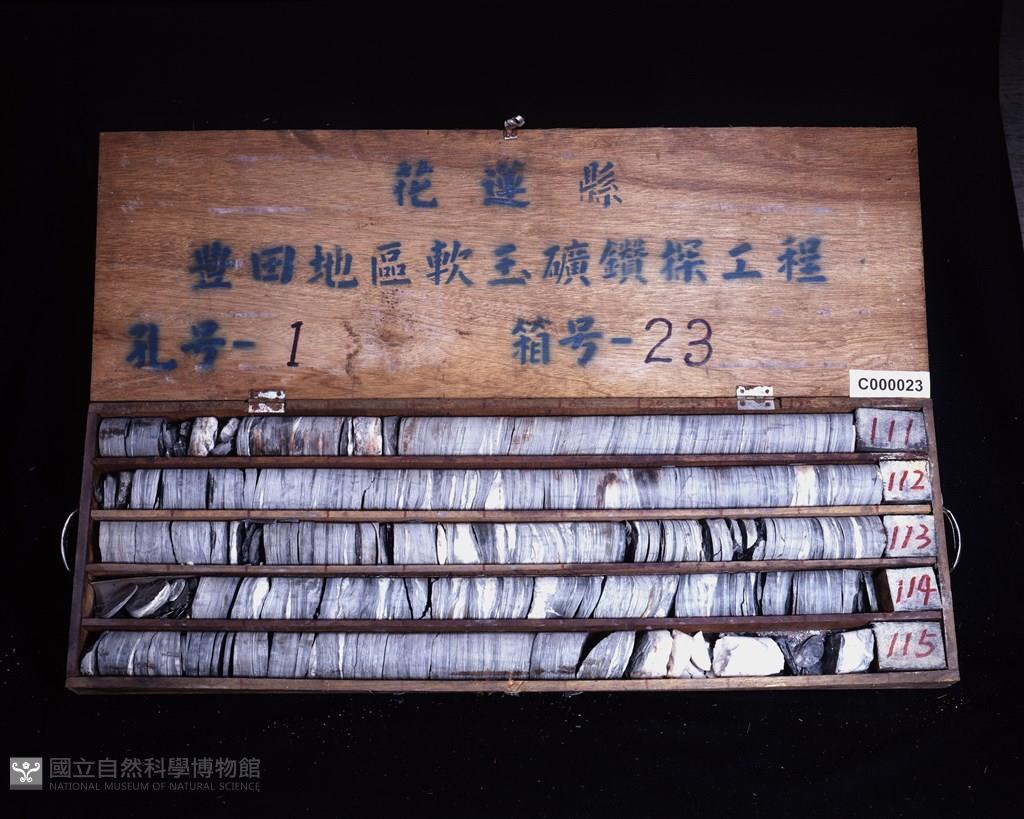 花蓮縣
豐田地區軟玉礦鑽探工程
孔号-1 箱号-23
C000023
111
112
113
114
115
國立自然科學博物館
NATIONAL MUSEUM OF NATURAL SCIENCE